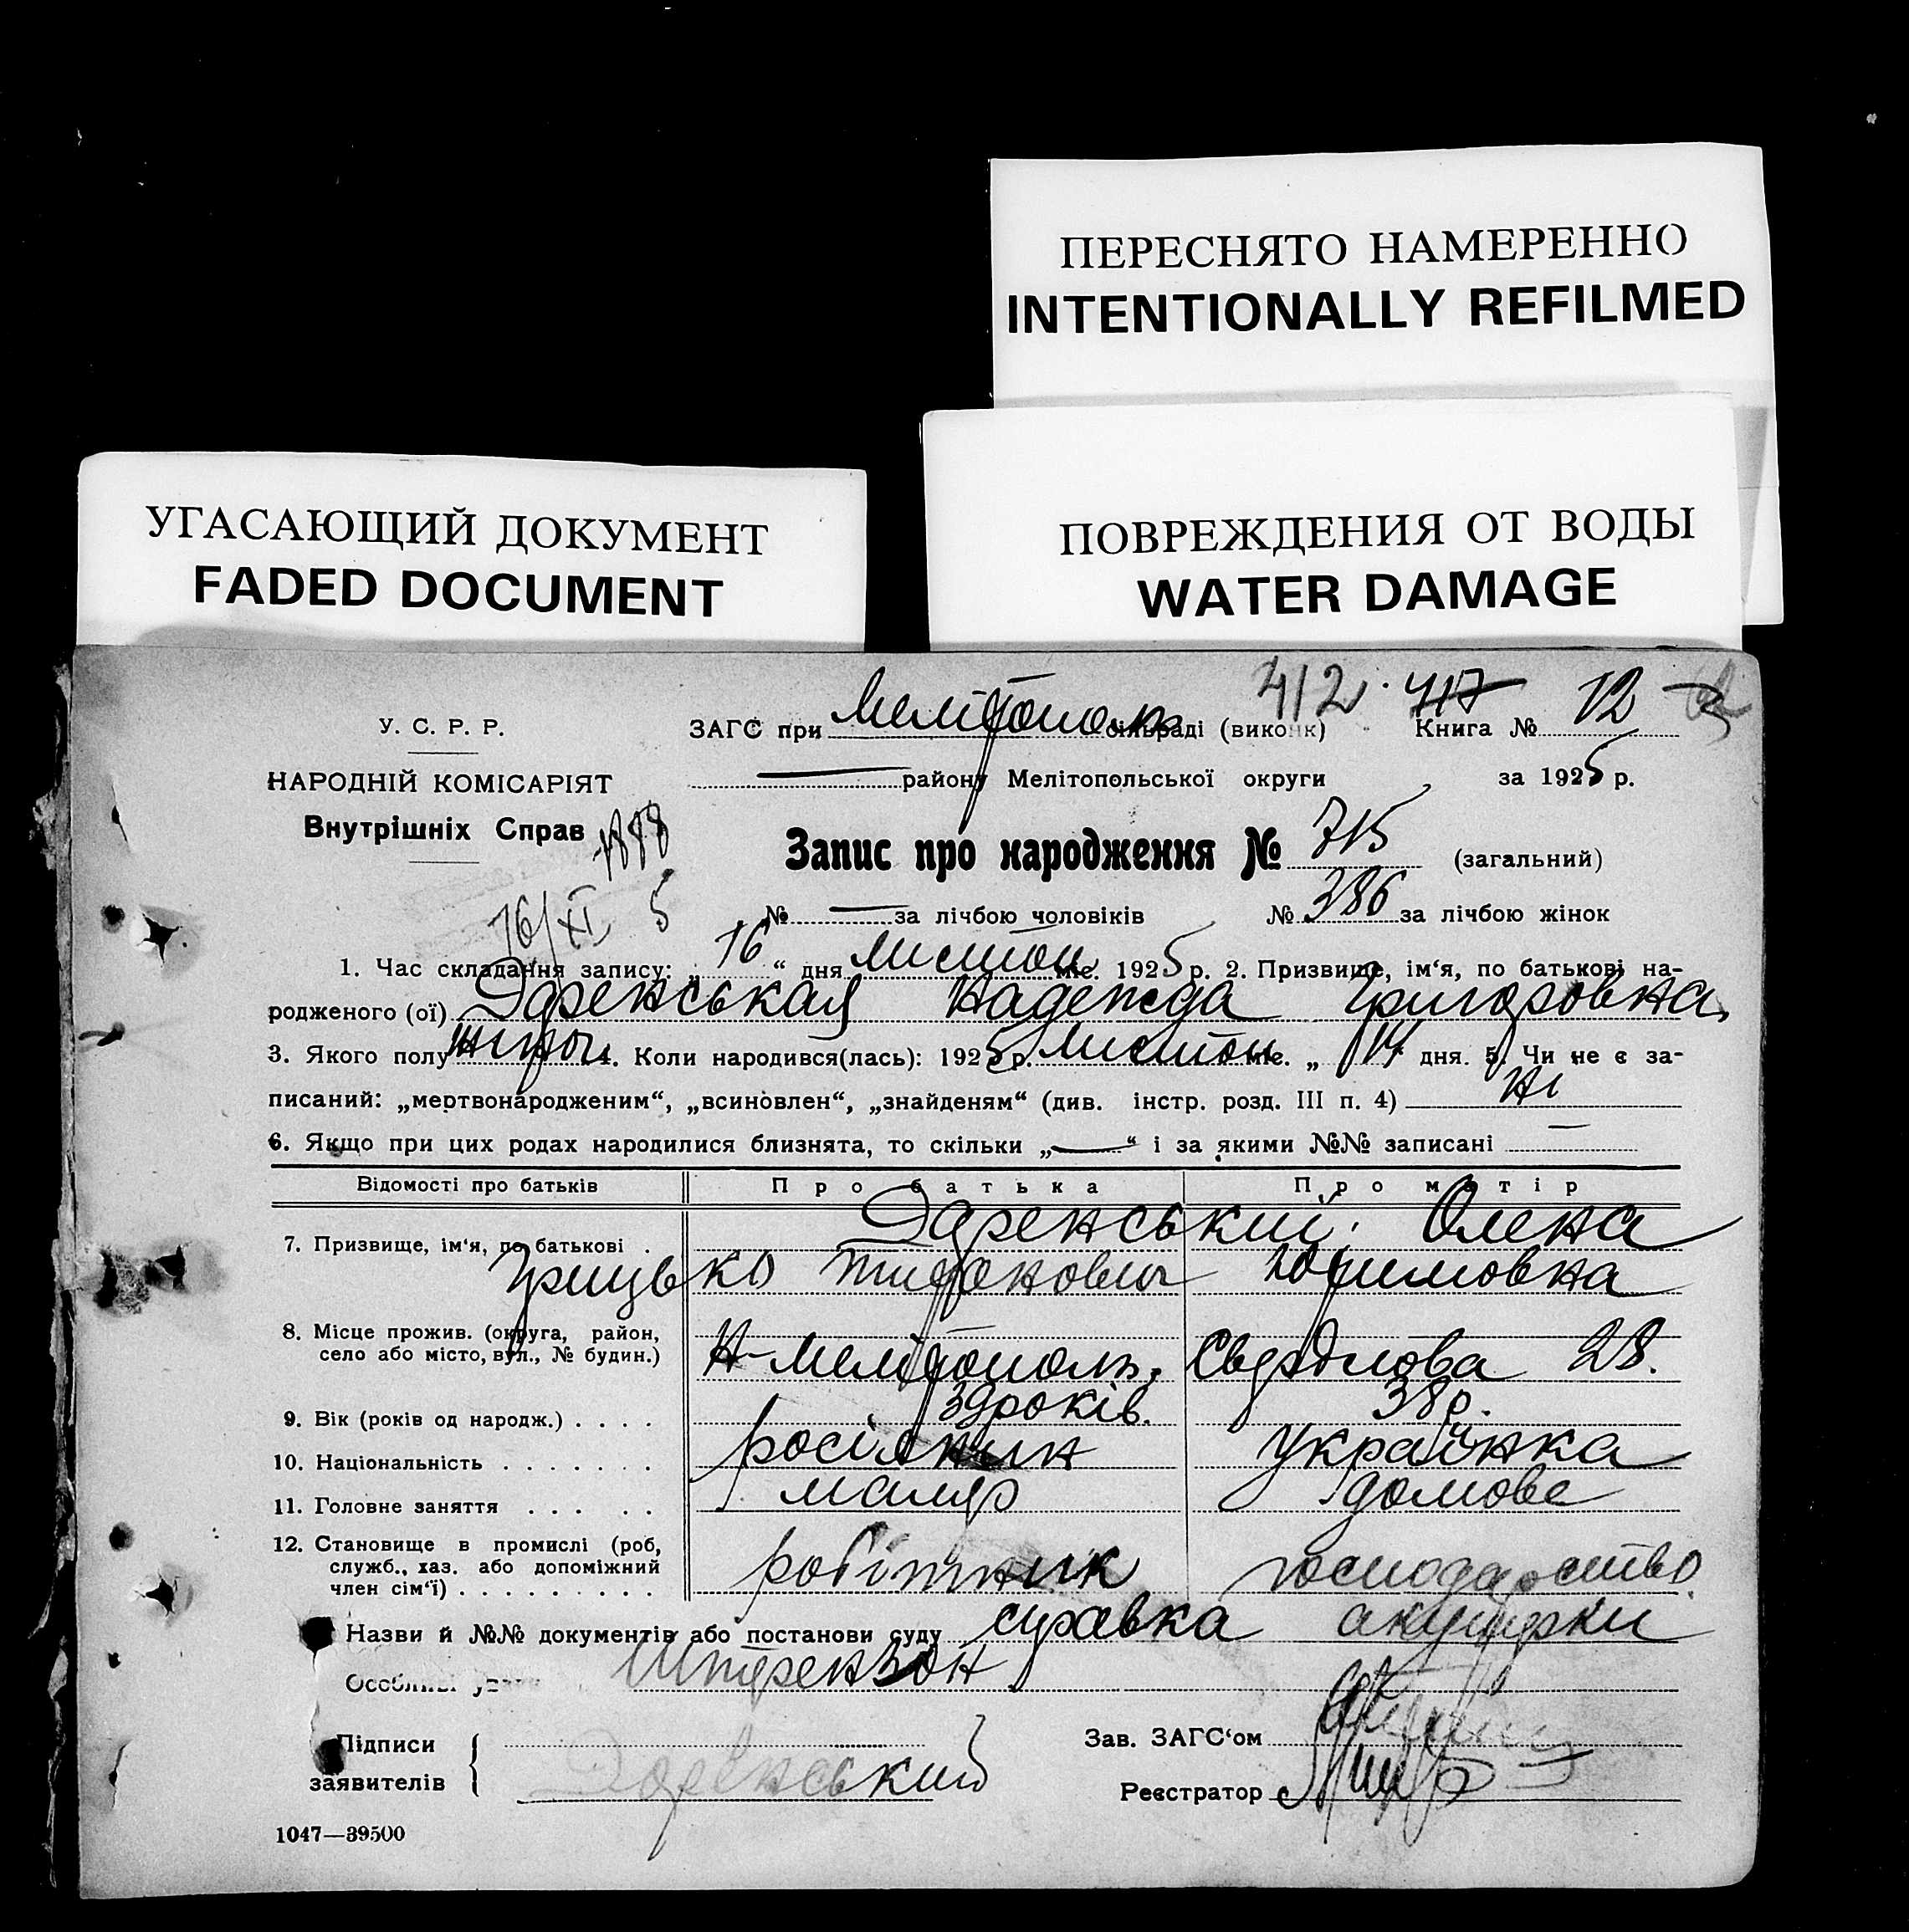 ПЕРЕСНЯТО НАМЕРЕННО
INTENTIONALLY REFILMED
УГАСАЮЩИЙ ДОКУМЕНТ
FADED DOCUMENT
ПОВРЕЖДЕНИЯ ОТ ВОДЫ
WATER DAMAGE
412 417 12
У. С. Р. Р.
ЗАГС при Мелітополь сільраді (виконк) Книга №
НАРОДНІЙ КОМІСАРІЯТ
району Мелітопольської округи за 1925 р.
Внутрішніх Справ
1888
Запис про народження № 715 (загальний)
16/XI 5
№ — за лічбою чоловіків № 386 за лічбою жінок
1. Час складання запису: „16“ дня листоп міс. 1925 р. 2. Призвище, ім‘я, по батькові на-
родженого (ої) Надежда Григоровна
3. Якого полу 4. Коли народився(лась): 1925 р. листоп міс. „14 дня. 5. Чи не є за-
писаний: „мертвонародженим“, „всиновлен“, „знайденям“ (див. інстр. розд. III п. 4) Ні
6. Якщо при цих родах народилися близнята, то скільки „—“ і за якими №№ записані —
Відомості про батьків Про батька Про матір
7. Призвище, ім‘я, по батькові Олена
Грицько Юхимовна
8. Місце прожив. (округа, район,
село або місто, вул., № будин.) Н-Мелітополь. Свердлова 28.
9. Вік (років од народж.) . . . . 39 років. 38 р.
10. Національність . . . . . . . росіянин Українка
11. Головне заняття . . . . . маляр домове
12. Становище в промислі (роб,
служб., хаз. або допоміжний
член сім‘ї) . . . . . . . . . робітник господарство
Назви й №№ документів або постанови суду справка акушерки
Особливі
Підписи
заявителів
Зав. ЗАГС‘ом
Реєстратор
1047—39500